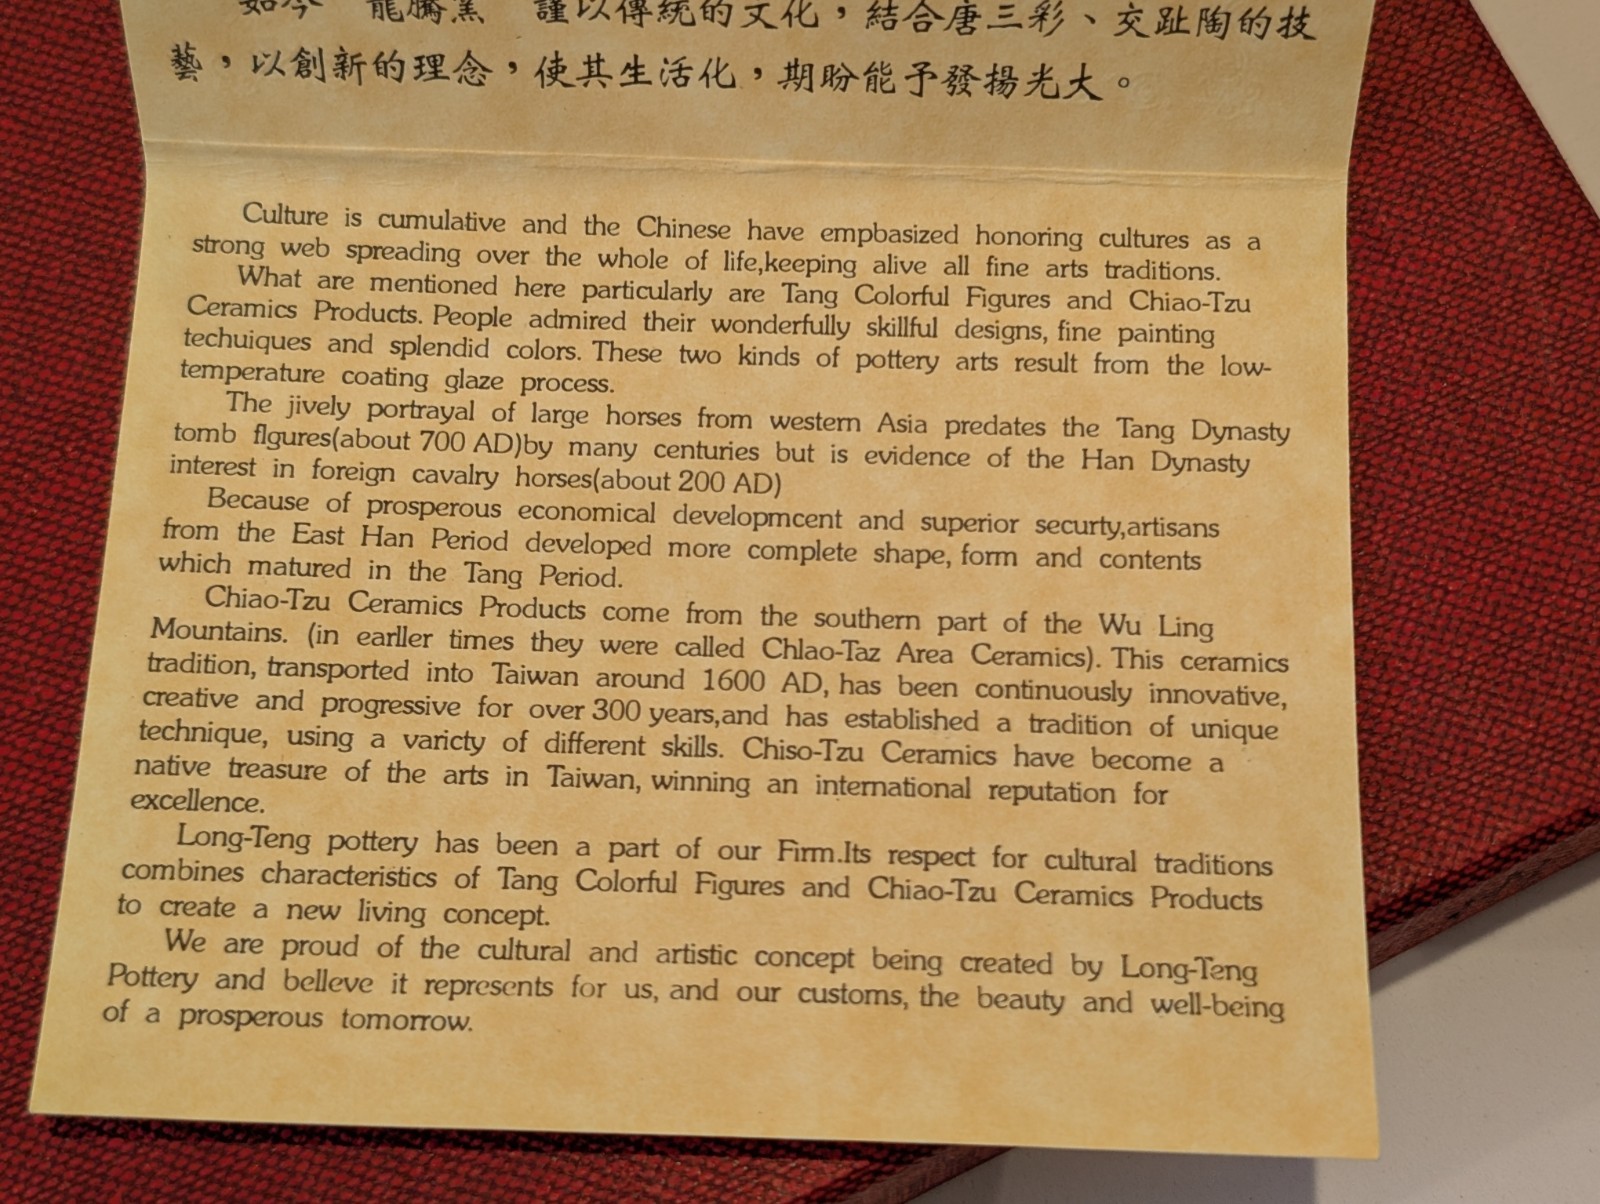 如今 龍騰窯 謹以傳統的文化，結合唐三彩、交趾陶的技
藝，以創新的理念，使其生活化，期盼能予發揚光大。
Culture is cumulative and the Chinese have empbasized honoring cultures as a
strong web spreading over the whole of life,keeping alive all fine arts traditions.
What are mentioned here particularly are Tang Colorful Figures and Chiao-Tzu
Ceramics Products. People admired their wonderfully skillful designs, fine painting
techuiques and splendid colors. These two kinds of pottery arts result from the low-
temperature coating glaze process.
The jively portrayal of large horses from western Asia predates the Tang Dynasty
tomb flgures(about 700 AD)by many centuries but is evidence of the Han Dynasty
interest in foreign cavalry horses(about 200 AD)
Because of prosperous economical developmcent and superior securty,artisans
from the East Han Period developed more complete shape, form and contents
which matured in the Tang Period.
Chiao-Tzu Ceramics Products come from the southern part of the Wu Ling
Mountains. (in earller times they were called Chlao-Taz Area Ceramics). This ceramics
tradition, transported into Taiwan around 1600 AD, has been continuously innovative,
creative and progressive for over 300 years,and has established a tradition of unique
technique, using a varicty of different skills. Chiso-Tzu Ceramics have become a
native treasure of the arts in Taiwan, winning an international reputation for
excellence.
Long-Teng pottery has been a part of our Firm.Its respect for cultural traditions
combines characteristics of Tang Colorful Figures and Chiao-Tzu Ceramics Products
to create a new living concept.
We are proud of the cultural and artistic concept being created by Long-Teng
Pottery and belleve it represents for us, and our customs, the beauty and well-being
of a prosperous tomorrow.